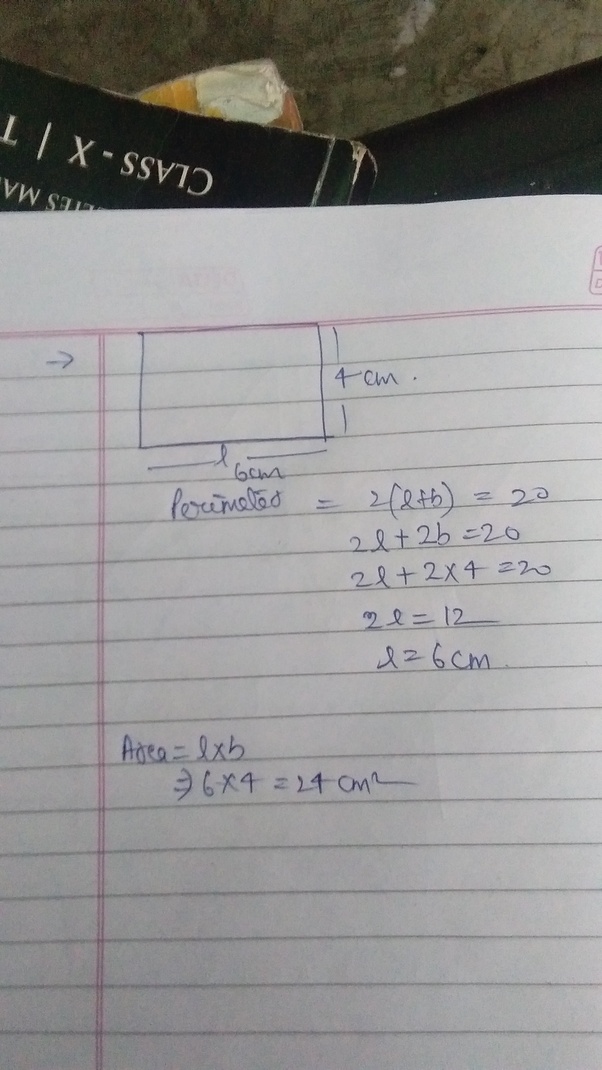 CLASS - X | T
→
4 cm .
l
6cm
Perimeter = 2(l+b) = 20
2l + 2b = 20
2l + 2×4 = 20
2l = 12
l = 6 cm
Area = l×b
⇒ 6×4 = 24 cm²